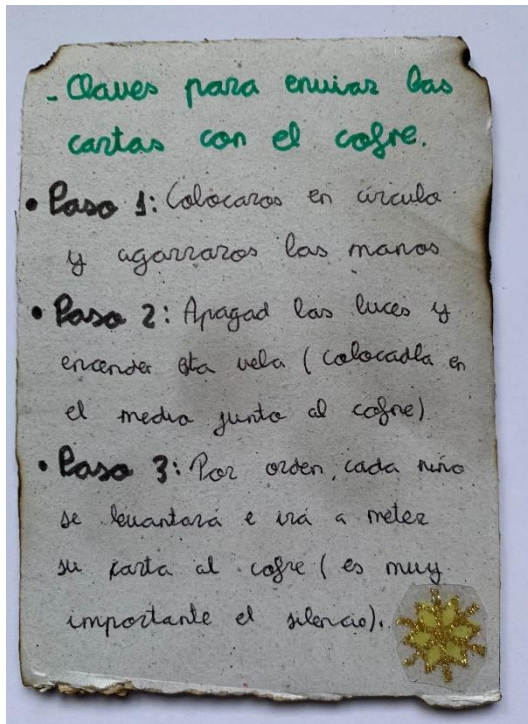 - Claves para enviar las
cartas con el cofre.
• Paso 1: Colocaros en círculo
y agarraros las manos
• Paso 2: Apagad las luces y
encender esta vela (colocadla en
el medio junto al cofre)
• Paso 3: Por orden, cada niño
se levantará e irá a meter
su carta al cofre (es muy
importante el silencio).